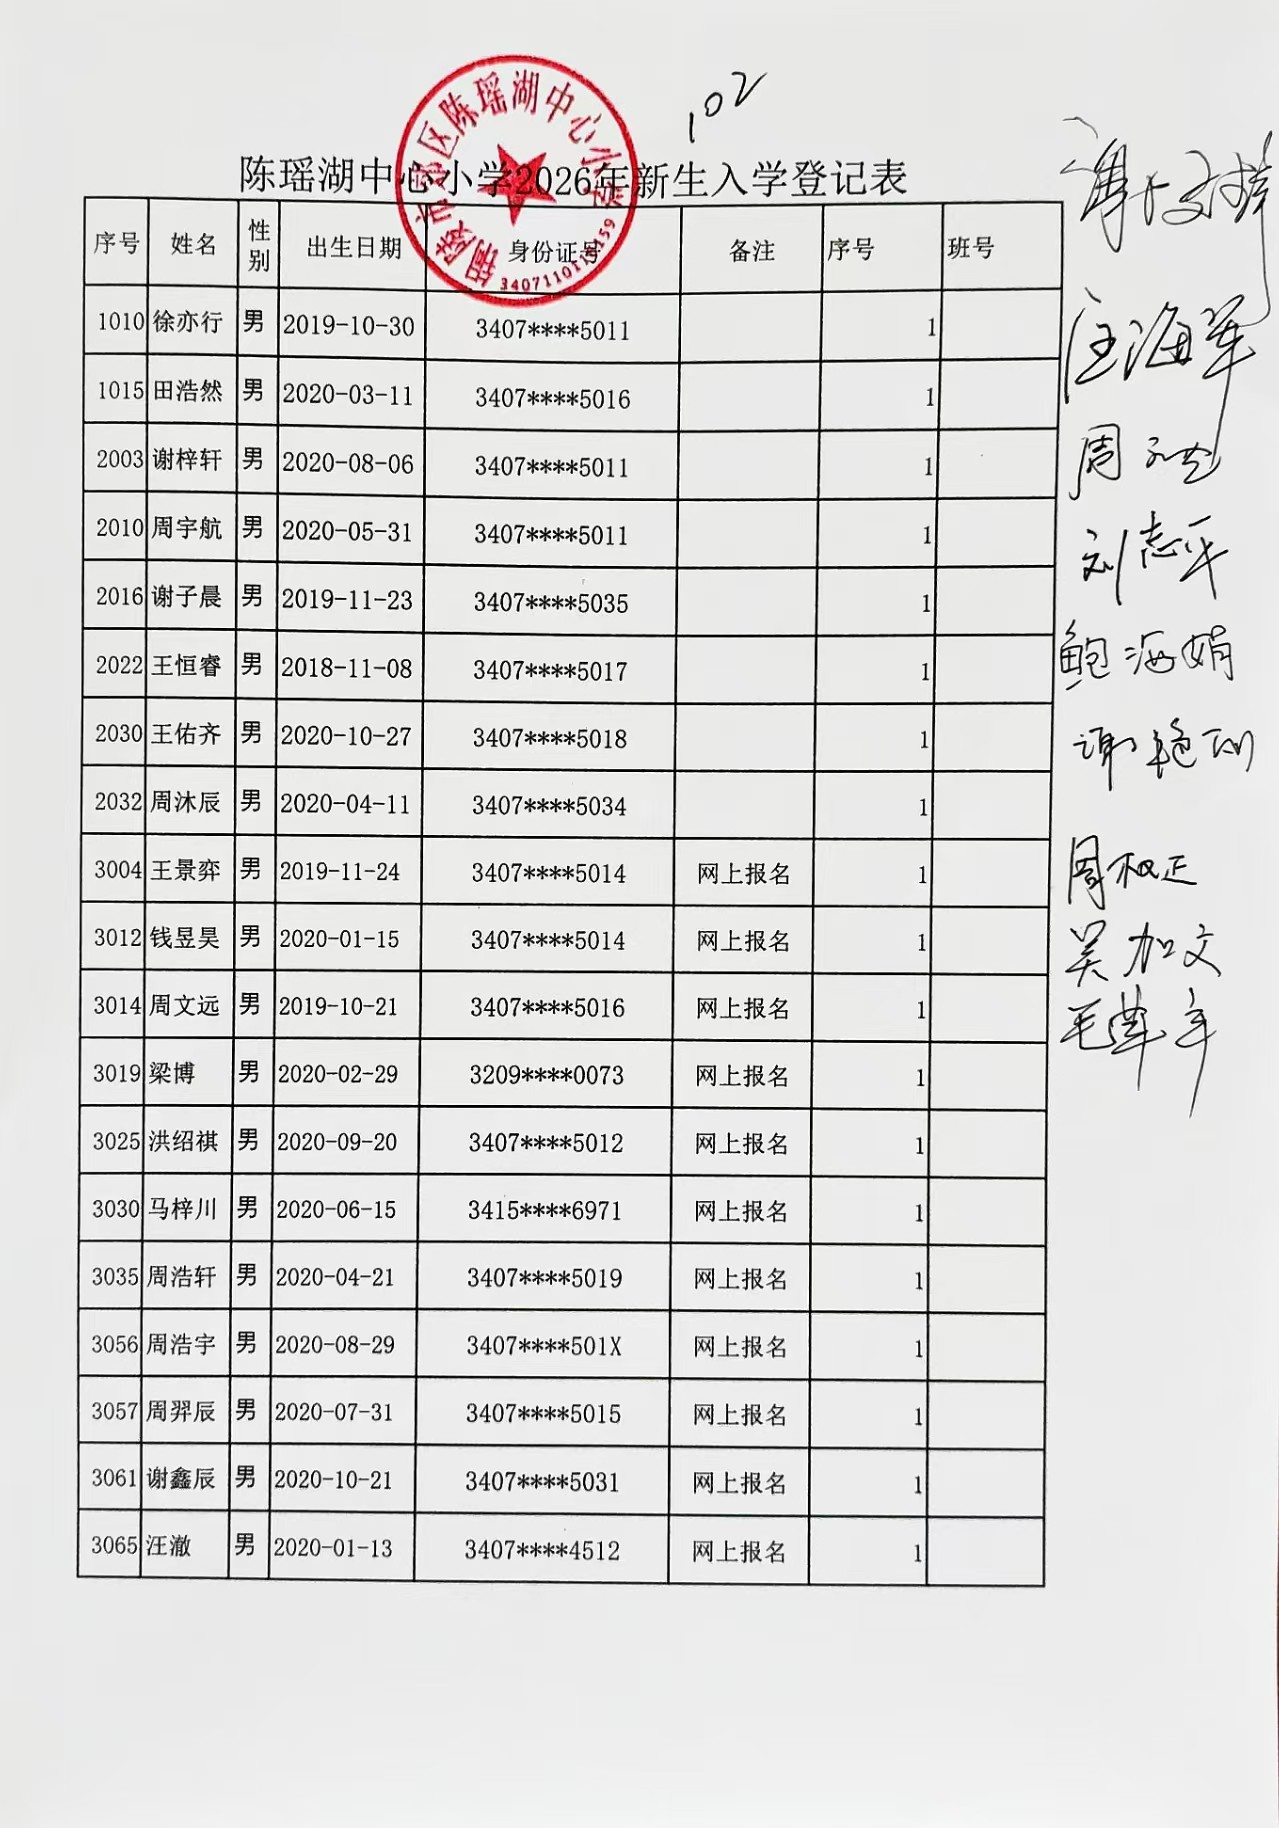 102
陈瑶湖中心小学2026年新生入学登记表
3407110118159
序号 姓名 性别 出生日期 身份证号 备注 序号 班号
1010 徐亦行 男 2019-10-30 3407****5011 1
1015 田浩然 男 2020-03-11 3407****5016 1
2003 谢梓轩 男 2020-08-06 3407****5011 1
2010 周宇航 男 2020-05-31 3407****5011 1
2016 谢子晨 男 2019-11-23 3407****5035 1
2022 王恒睿 男 2018-11-08 3407****5017 1
2030 王佑齐 男 2020-10-27 3407****5018 1
2032 周沐辰 男 2020-04-11 3407****5034 1
3004 王景弈 男 2019-11-24 3407****5014 网上报名 1
3012 钱昱昊 男 2020-01-15 3407****5014 网上报名 1
3014 周文远 男 2019-10-21 3407****5016 网上报名 1
3019 梁博 男 2020-02-29 3209****0073 网上报名 1
3025 洪绍祺 男 2020-09-20 3407****5012 网上报名 1
3030 马梓川 男 2020-06-15 3415****6971 网上报名 1
3035 周浩轩 男 2020-04-21 3407****5019 网上报名 1
3056 周浩宇 男 2020-08-29 3407****501X 网上报名 1
3057 周羿辰 男 2020-07-31 3407****5015 网上报名 1
3061 谢鑫辰 男 2020-10-21 3407****5031 网上报名 1
3065 汪澈 男 2020-01-13 3407****4512 网上报名 1
汪海军
刘志平
鲍海娟
吴加文